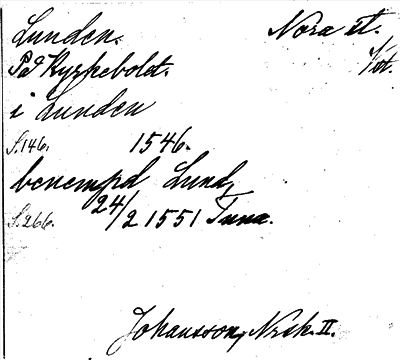 Lunden. Nora st.
På Kyrkebolet. 1/1 st.
i Lunden
S.146. 1546.
benempd Lund,
S.266. 24/2 1551 Tuna.
Johansson, Nrsk. II.